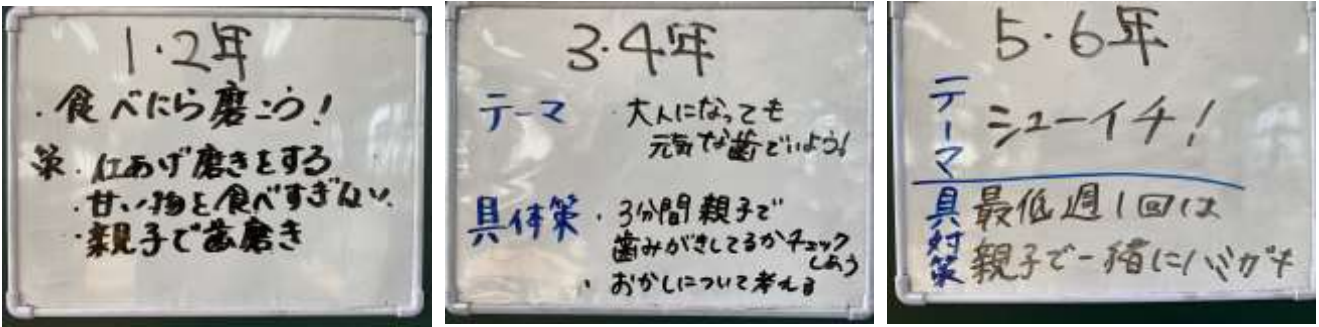 1・2年
・食べたら磨こう!
策・仕あげ磨きをする
・甘い物を食べすぎない
・親子で歯磨き
3・4年
テーマ ・大人になっても
元気な歯でいよう!
具体策 ・3分間親子で
歯みがきしてるかチェック
しあう
・おかしについて考える
5・6年
テーマ シューイチ!
具対策 最低週1回は
親子で一緒にハミガキ